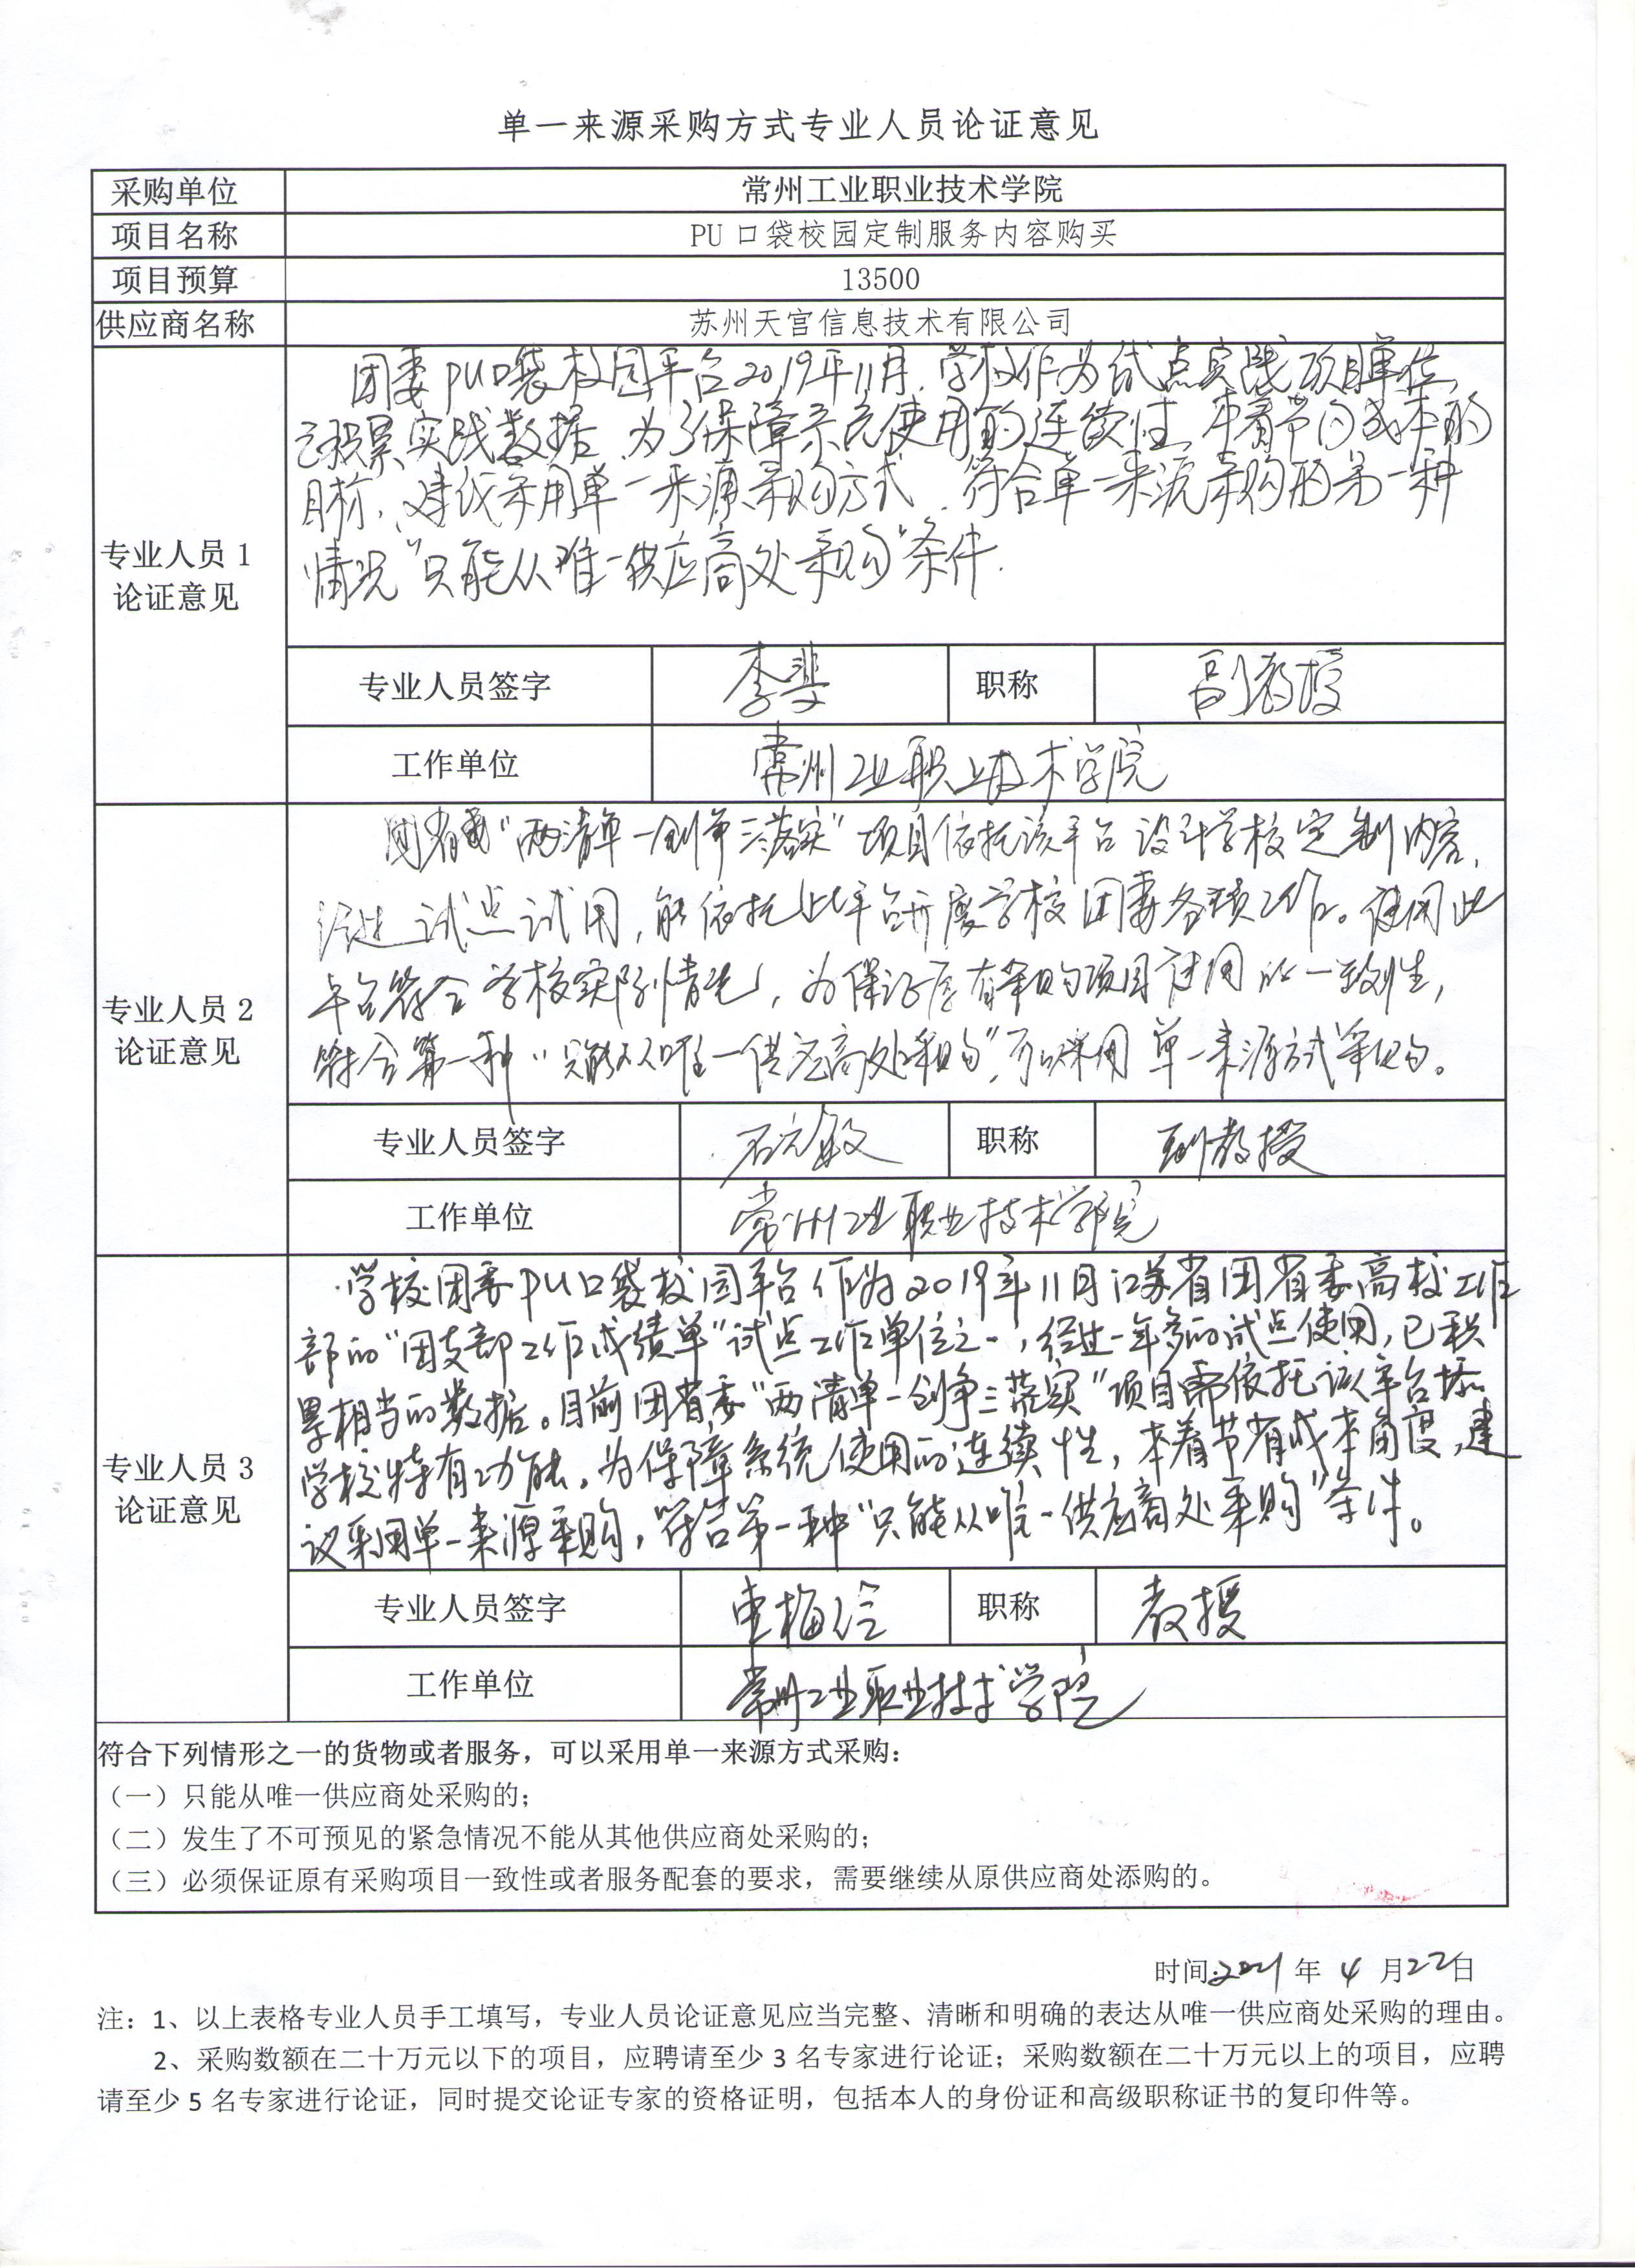 单一来源采购方式专业人员论证意见
采购单位 常州工业职业技术学院
项目名称 PU 口袋校园定制服务内容购买
项目预算 13500
供应商名称 苏州天宫信息技术有限公司
团委PU口袋校园平台2019年11月,学校作为试点实践项目单位,
已积累实践数据,为了保障系统使用的连续性,本着节约成本的
目标,建议采用单一来源采购方式,符合单一来源采购的第一种
情况"只能从唯一供应商处采购"条件.
专业人员 1
论证意见
专业人员签字 李斐 职称 副教授
工作单位 常州工业职业技术学院
团省委"两清单一创争三落实"项目依托该平台设计学校定制内容,
经过试点试用,能依托此平台开展学校团委各项工作。使用此
平台符合学校实际情况,为保证原有采购项目使用的一致性,
符合第一种"只能从唯一供应商处采购",可以采用单一来源方式采购。
专业人员 2
论证意见
专业人员签字 职称 副教授
工作单位 常州工业职业技术学院
学校团委PU口袋校园平台作为2019年11月江苏省团省委高校工作
部的"团支部工作成绩单"试点工作单位之一,经过一年多的试点使用,已积
累相当的数据。目前团省委"两清单一创争三落实"项目需依托该平台添加
学校特有功能。为保障系统使用的连续性,本着节省成本角度,建
议采用单一来源采购,符合第一种"只能从唯一供应商处采购"条件。
专业人员 3
论证意见
专业人员签字 职称 教授
工作单位 常州工业职业技术学院
符合下列情形之一的货物或者服务，可以采用单一来源方式采购：
（一）只能从唯一供应商处采购的；
（二）发生了不可预见的紧急情况不能从其他供应商处采购的；
（三）必须保证原有采购项目一致性或者服务配套的要求，需要继续从原供应商处添购的。
时间:2021 年 4 月22日
注：1、以上表格专业人员手工填写，专业人员论证意见应当完整、清晰和明确的表达从唯一供应商处采购的理由。
2、采购数额在二十万元以下的项目，应聘请至少 3 名专家进行论证；采购数额在二十万元以上的项目，应聘
请至少 5 名专家进行论证，同时提交论证专家的资格证明，包括本人的身份证和高级职称证书的复印件等。